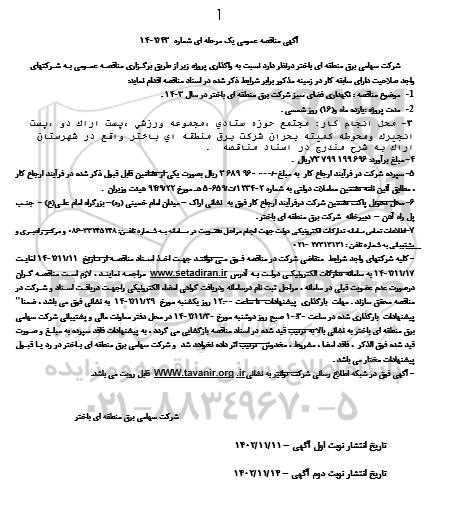 1
آگهی مناقصه عمومی یک مرحله ای شماره
شرکت سهامی برق منطقه ای باختر درنظر دارد نسبت به واگذاری پروژه زیر از طریق برگزاری مناقصه عمومی به شرکتهای
واجد صلاحیت دارای سابقه کار در زمینه مذکور برابر شرایط ذکر شده در اسناد مناقصه اقدام نماید:
1- موضوع مناقصه : نگهداری فضای سبز شرکت برق منطقه ای باختر در سال 1403
2- مدت پروژه: یازده ماه و(16) روز شمسی .
3- محل انجام کار: مجتمع حوزه ستادی ،مجموعه ورزشی ،پست اراک دو ،پست
انجیرک ومحوطه کمیته بحران شرکت برق منطقه ای باختر واقع در شهرستان
اراک به شرح مندرج در اسناد مناقصه .
4- مبلغ برآورد: 73799199696 ریال
5- سپرده شرکت در فرآیند ارجاع کار به مبلغ ریال بصورت یکی از ضمانتین قابل قبول ذکر شده در فرآیند ارجاع کار
، مطابق آئین نامه تضمین معاملات دولتی به شماره مورخ 94/9/22 هیئت وزیران .
6- محل تحویل پاکت تضمین شرکت درفرآیند ارجاع کار فوق به نشانی اراک – میدان امام خمینی (ره)– بزرگراه امام علی(ع) – جنب
پل راه آهن – دبیرخانه شرکت برق منطقه ای باختر .
7- اطلاعات تماس سامانه تدارکات الکترونیکی دولت جهت انجام مراحل عضویت در سامانه به شماره تلفن: و مرکز راهبری و
پشتیبانی به شماره تلفن :
- کلیه شرکتهای واجد شرایط متقاضی شرکت در مناقصه فوق می توانند جهت اخذ اسناد مناقصه از تاریخ 1402/11/11 لغایت
1402/11/17 به سامانه تدارکات الکترونیکی دولت به آدرس www.setadiran.ir مراجعه نمایند . لازم است مناقصه گران
درصورت عدم عضویت قبلی در سامانه ، مراحل ثبت نام درسامانه ودریافت گواهی امضاء الکترونیکی راجهت دریافت اسناد و شرکت در
مناقصه محقق سازند . مهلت بارگذاری پیشنهادات تا ساعت 12:00 روز یکشنبه مورخ 1402/11/29 به نشانی فوق می باشد . ضمنا"
پیشنهادات بارگذاری شده در ساعت 10:30 صبح روز دوشنبه مورخ 1402/11/30 در محل دفتر معاونت مالی و پشتیبانی شرکت سهامی
برق منطقه ای باختر به نشانی بالا به ترتیب قید شده در اسناد مناقصه بازگشایی می گردد ، به پیشنهادات فاقد سپرده به مبلغ و صورت
قید شده فوق الذکر ، فاقد امضاء ، مشروط ، مخدوش ترتیب اثر داده نخواهد شد و شرکت سهامی برق منطقه ای باختر در رد یا قبول
پیشنهادات مختار می باشد .
- آگهی فوق در شبکه اطلاع رسانی شرکت توانیر به نشانی WWW.tavanir.org.ir قابل رویت می باشد.
۰۲۱-۸۸۳۴۹۶۷۰-۵
شرکت سهامی برق منطقه ای باختر
تاریخ انتشار نوبت اول آگهی – 1402/11/11
تاریخ انتشار نوبت دوم آگهی – 1402/11/14